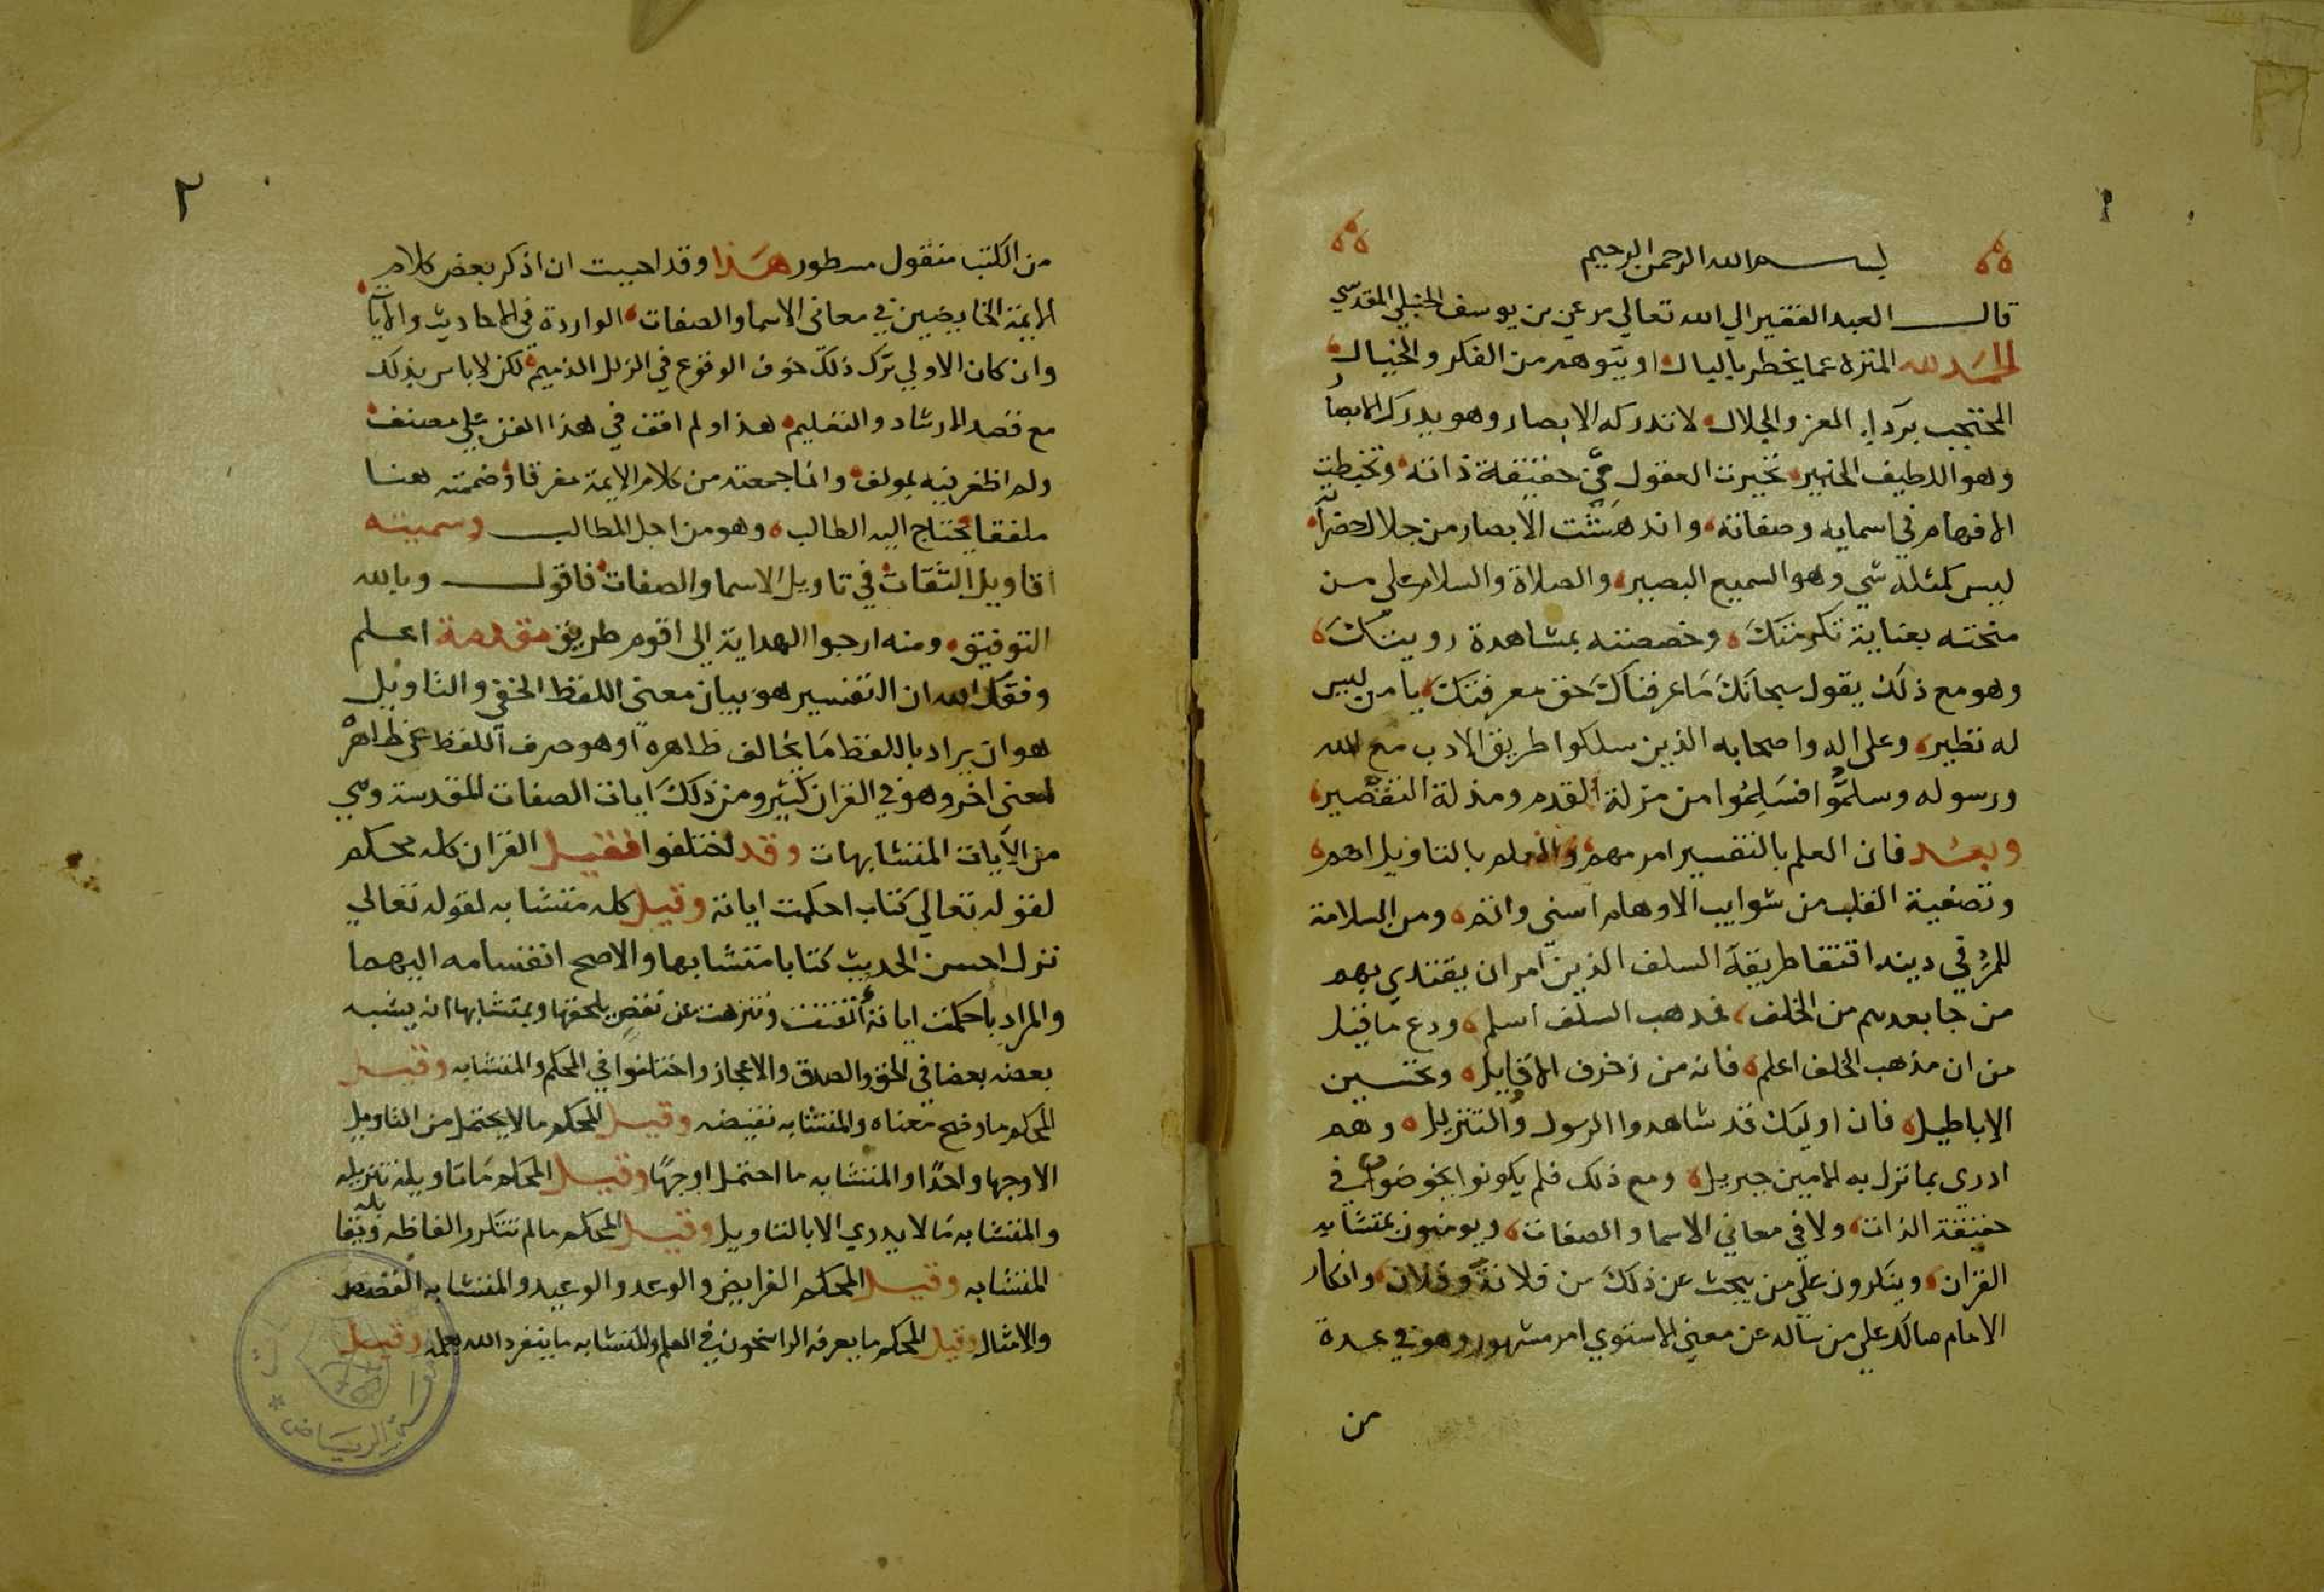 بسم الله الرحمن الرحيم
قال العبد الفقير الي الله تعالي مرعي بن يوسف الحنبلي المقدسي
الحمد لله المنزه عما يخطر بالبال او يتوهم من الفكر والخيال
المحتجب برداء العز والجلال لا تدركه الابصار وهو يدرك الابصار
وهو اللطيف الخبير تحيرت العقول في حقيقة ذاته وتخبطت
الافهام في اسمايه وصفاته واندهشت الابصار من جلال حضراته
ليس كمثله شي وهو السميع البصير والصلاة والسلام علي من
منحته بعناية تكرمتك وخصصته بمشاهدة رويتك
وهو مع ذلك يقول سبحانك ما عرفناك حق معرفتك يا من ليس
له نظير وعلى اله واصحابه الذين سلكوا طريق الادب مع الله
ورسوله وسلموا فسلموا من مزلة القدم ومذلة التقصير
وبعد فان العلم بالتفسير امر مهم والعلم بالتاويل اهم
وتصفية القلب من شوايب الاوهام اسنى واتم ومن السلامة
للمرء في دينه اقتفا طريقة السلف الذين امر ان يقتدي بهم
من جا بعدهم من الخلف فمذهب السلف اسلم ودع ما قيل
من ان مذهب الخلف اعلم فانه من زخرف الاقاويل وتحسين
الاباطيل فان اوليك قد شاهدوا الرسول والتنزيل وهم
ادرى بما نزل به الامين جبريل ومع ذلك فلم يكونوا يخوضون في
حقيقة الذات ولا في معاني الاسما والصفات ويومنون بمتشابه
القران وينكرون علي من يبحث عن ذلك من فلانة وفلان وانكار
الامام مالك علي من ساله عن معنى الاستوي امر مشهور وهو في عدة
من
٢
من الكتب منقول مسطور هذا وقد احببت ان اذكر بعض كلام
الايمة الخايضين في معاني الاسما والصفات الواردة في الاحاديث والايات
وان كان الاولي ترك ذلك خوف الوقوع في الزلل الذميم لكن لا باس بذلك
مع قصد الارشاد والتعليم هذا ولم اقف في هذا الفن علي مصنف
ولم اظفر فيه بمولف وانما جمعته من كلام الايمة مفرقا وضممته هنا
ملفقا يحتاج اليه الطالب وهو من اجل المطالب وسميته
اقاويل الثقات في تاويل الاسما والصفات فاقول وبالله
التوفيق ومنه ارجوا الهداية الى اقوم طريق مقدمة اعلم
وفقك الله ان التفسير هو بيان معنى اللفظ الخفي والتاويل
هو ان يراد باللفظ ما يخالف ظاهره او هو صرف اللفظ عن ظاهره
لمعنى اخر وهو في القران كثير ومن ذلك ايات الصفات المقدسة وهي
من الآيات المتشابهات وقد اختلفوا فقيل القران كله محكم
لقوله تعالي كتاب احكمت اياته وقيل كله متشابه لقوله تعالي
نزل احسن الحديث كتابا متشابها والاصح انقسامه اليهما
والمراد باحكمت اياته اتقنت وتنزهت عن نقص يلحقها وبمتشابها انه يشبه
بعضه بعضا في الحق والصدق والاعجاز واختلفوا في المحكم والمتشابه وقيل
المحكم ما وضح معناه والمتشابه نقيضه وقيل المحكم ما لا يحتمل من التاويل
الا وجها واحدًا والمتشابه ما احتمل اوجهًا وقيل المحكم ما تاويله تنزيله
والمتشابه ما لا يدري الا بالتاويل وقيل المحكم ما لم تتكرر الفاظه ويقابله
المتشابه وقيل المحكم الفرايض والوعد والوعيد والمتشابه القصص
والامثال وقيل المحكم ما يعرفه الراسخون في العلم والمتشابه ما ينفرد الله بعلمه وقيل